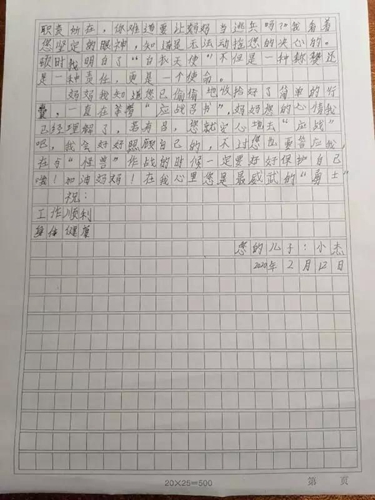 职责所在,你难道要让妈妈当逃兵吗?"我看着
您坚定的眼神,知道是无法动摇您的决心的。
顿时我明白了"白衣天使"不仅是一种称号还
是一种责任,更是一个使命。
妈妈我知道您已偷偷地收拾好了简单的行
囊,一直在等待"应战号书",妈妈您的心情我
已经理解了,若有召,您就安心地去"应战"
吧,我会好好照顾自己的,不过您也要答应我,
在与"怪兽"作战的时候一定要好好保护自己
哦!加油妈妈!在我心里您是最威武的"勇士"
祝:
工作顺利
身体健康
您的儿子:小杰
2020年2月12日
20×25=500
第 页